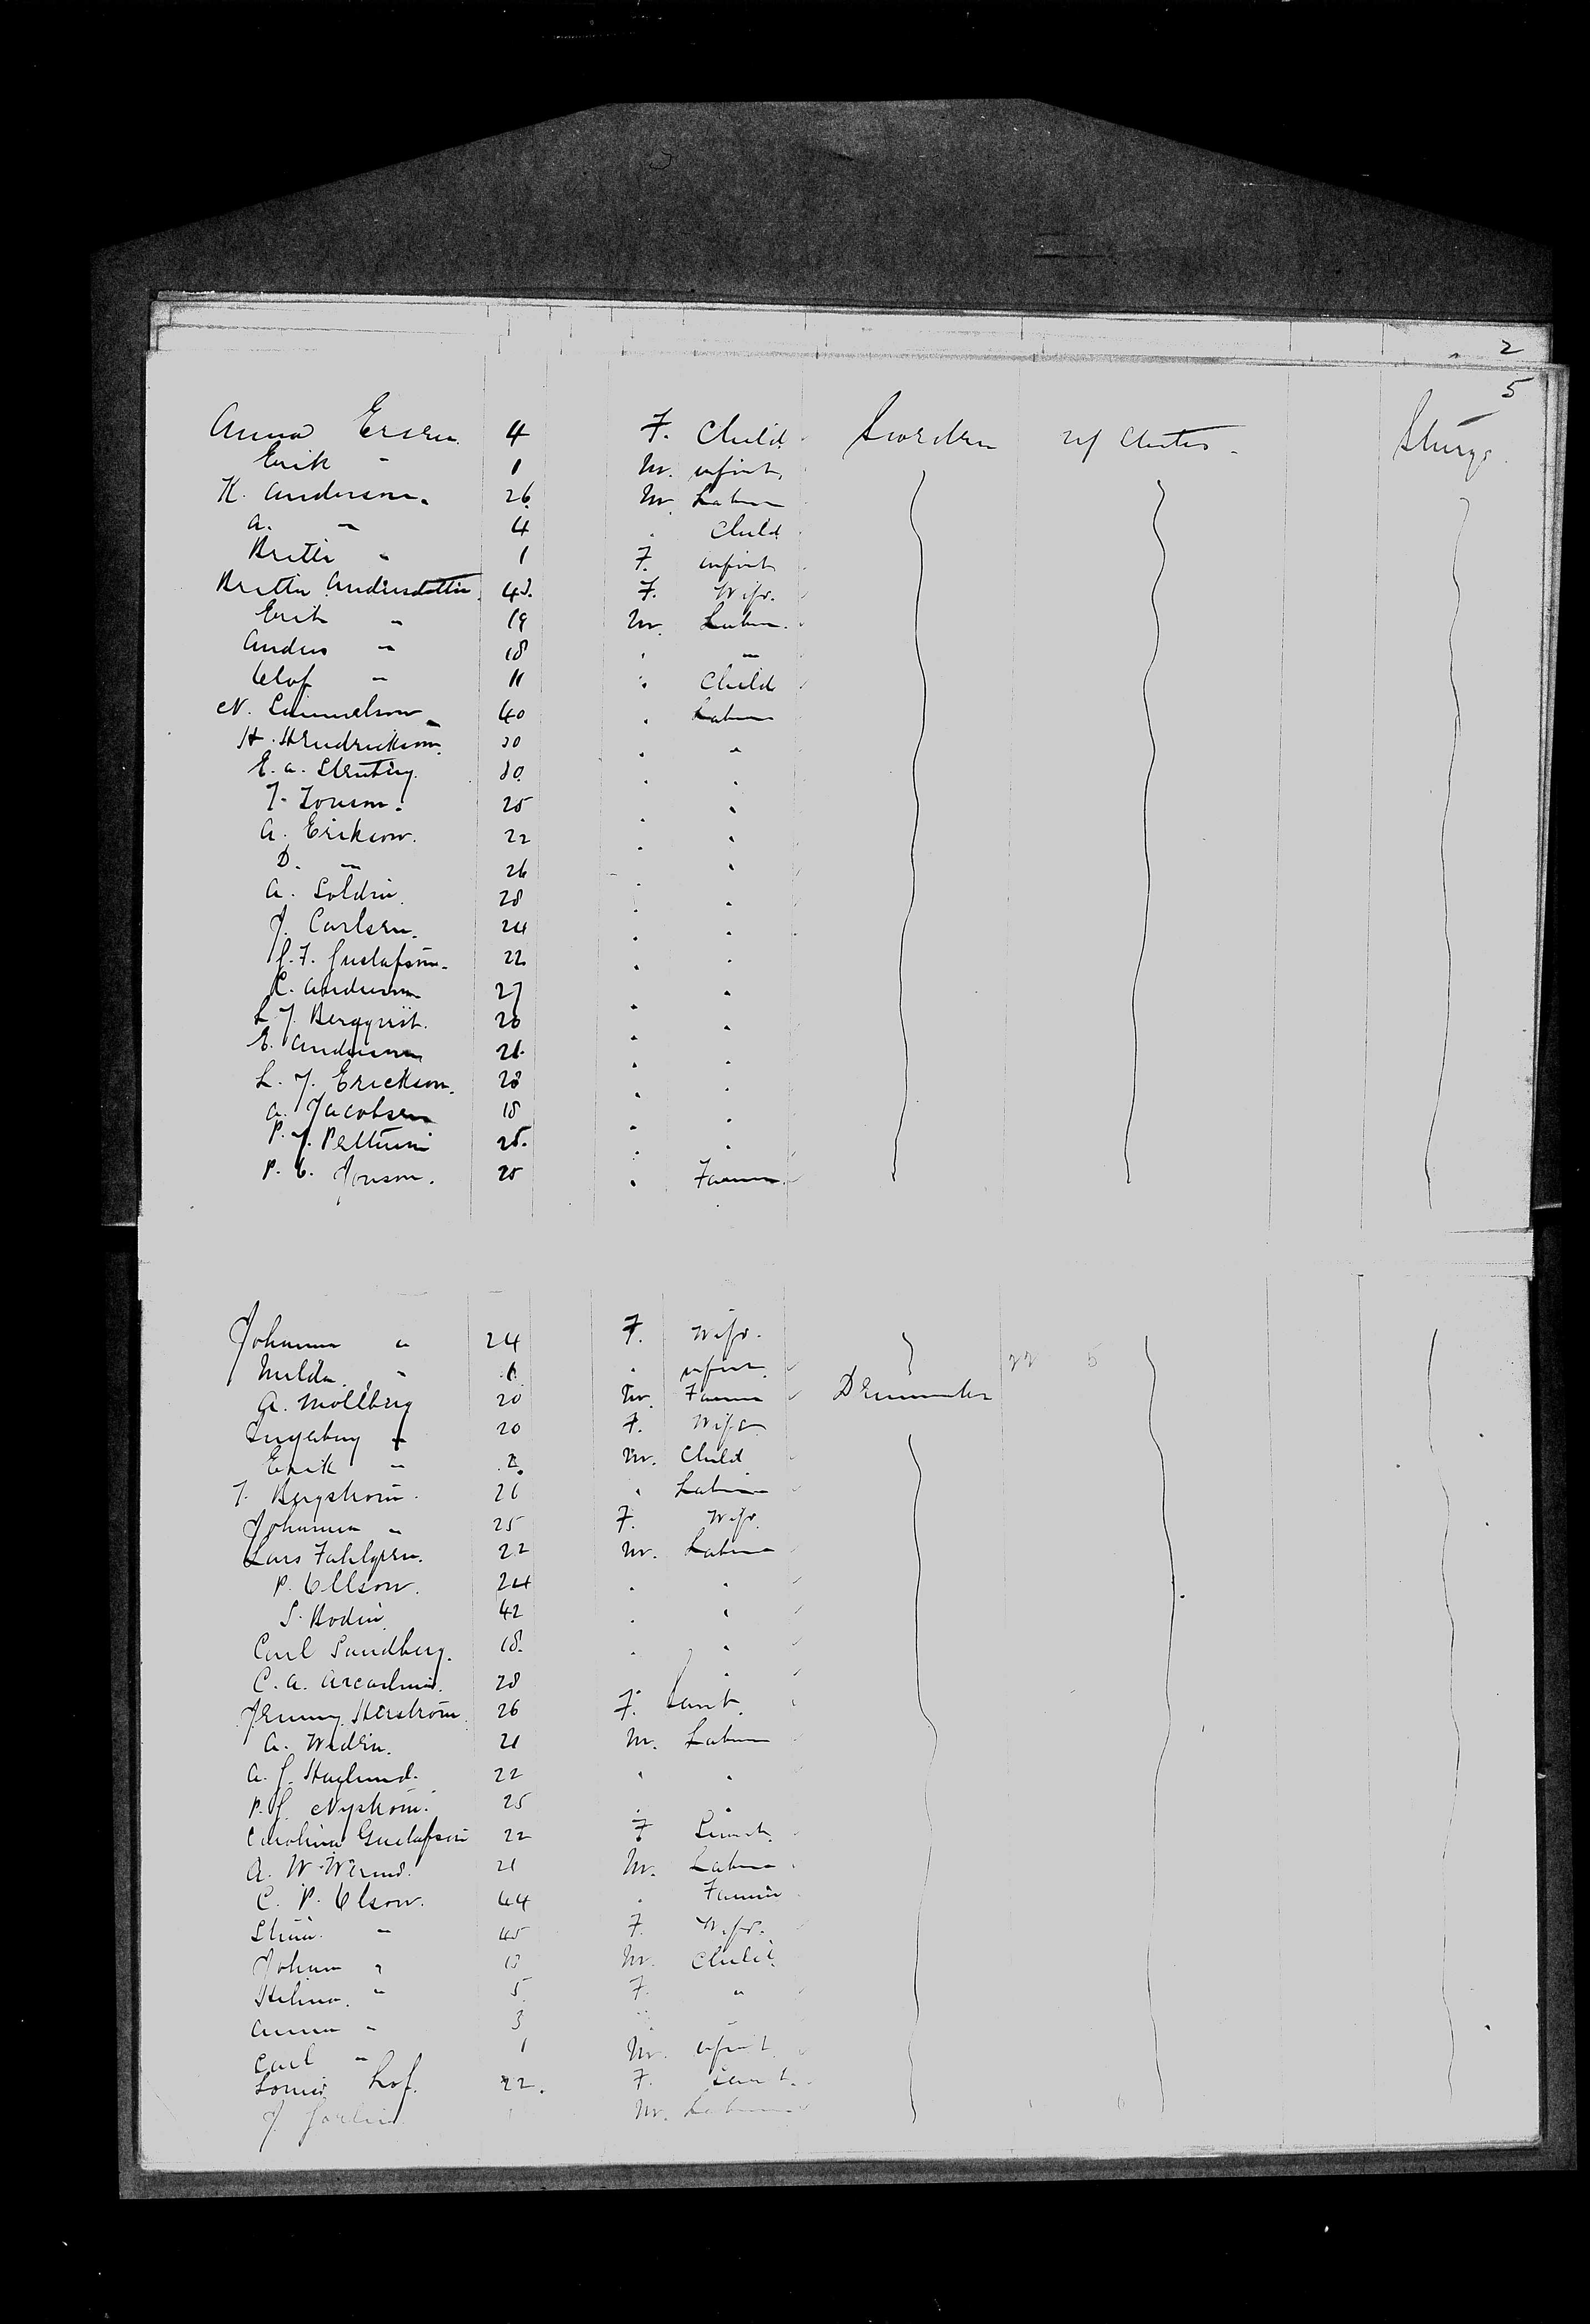 2
5
Anna Ersen. 4 F. Child. Sweden U States. Sturge.
Erik " 1 M. infant,
K. Anderson. 26. M. Labor
A. " 4 " Child
Britta " 1 F. infant
Britta Andersdotter. F. Wife.
Erik " 19 M. Labor.
Anders " 18 " "
Olof " 11 " Child
N. Samuelson 40 " Labor
H. Hendrickson. 30 " "
E. A. Stenberg. 30. " "
J. Jonson. 25 " "
A. Erikson. 22 " "
D. " 26 " "
A. Soldin. 28 " "
J. Carlsen. 24 " "
G. F. Gustafson. 22 " "
C. Anderson 27 " "
L. J. Bergqvist. 20 " "
E. Anderson 21. " "
L. J. Erickson. 28 " "
A. Jacobsen 18 " "
P. J. 25. " "
P. O. Jonson. 25 " Farmer.
Johanna " 24 F. Wife.
Hilda. " 1 " infant.
A. Mollberg 20 M. Farmer Denmark
Ingeborg " 20 F. Wife
Erik " 2. M. Child
J. Bergstrom. 26 " Labor
Johanna " 25 F. Wife.
Lars Fahlgren. 22 M. Labor
P. Ollson. 24 " "
S. Bodin. 42 " "
Carl Sandberg. 18. " "
C. A. 28 " "
Jenny Herstrom. 26 F. Servt.
A. Wedin. 21 M. Labor
A. G. Haglund. 22 " "
P. G. Nystrom. 25 " "
Carolina Gustafson 22 F Servt.
A. W. 21 M. Labor
C. P. Olson. 44 " Farmer
Stina. " 45 F. Wife.
Johan " M. Child.
Helina. " 5 F. "
Anna " 3 " "
Carl " 1 M. infant.
Lof. 22. F. Servt.
J. M. Labor